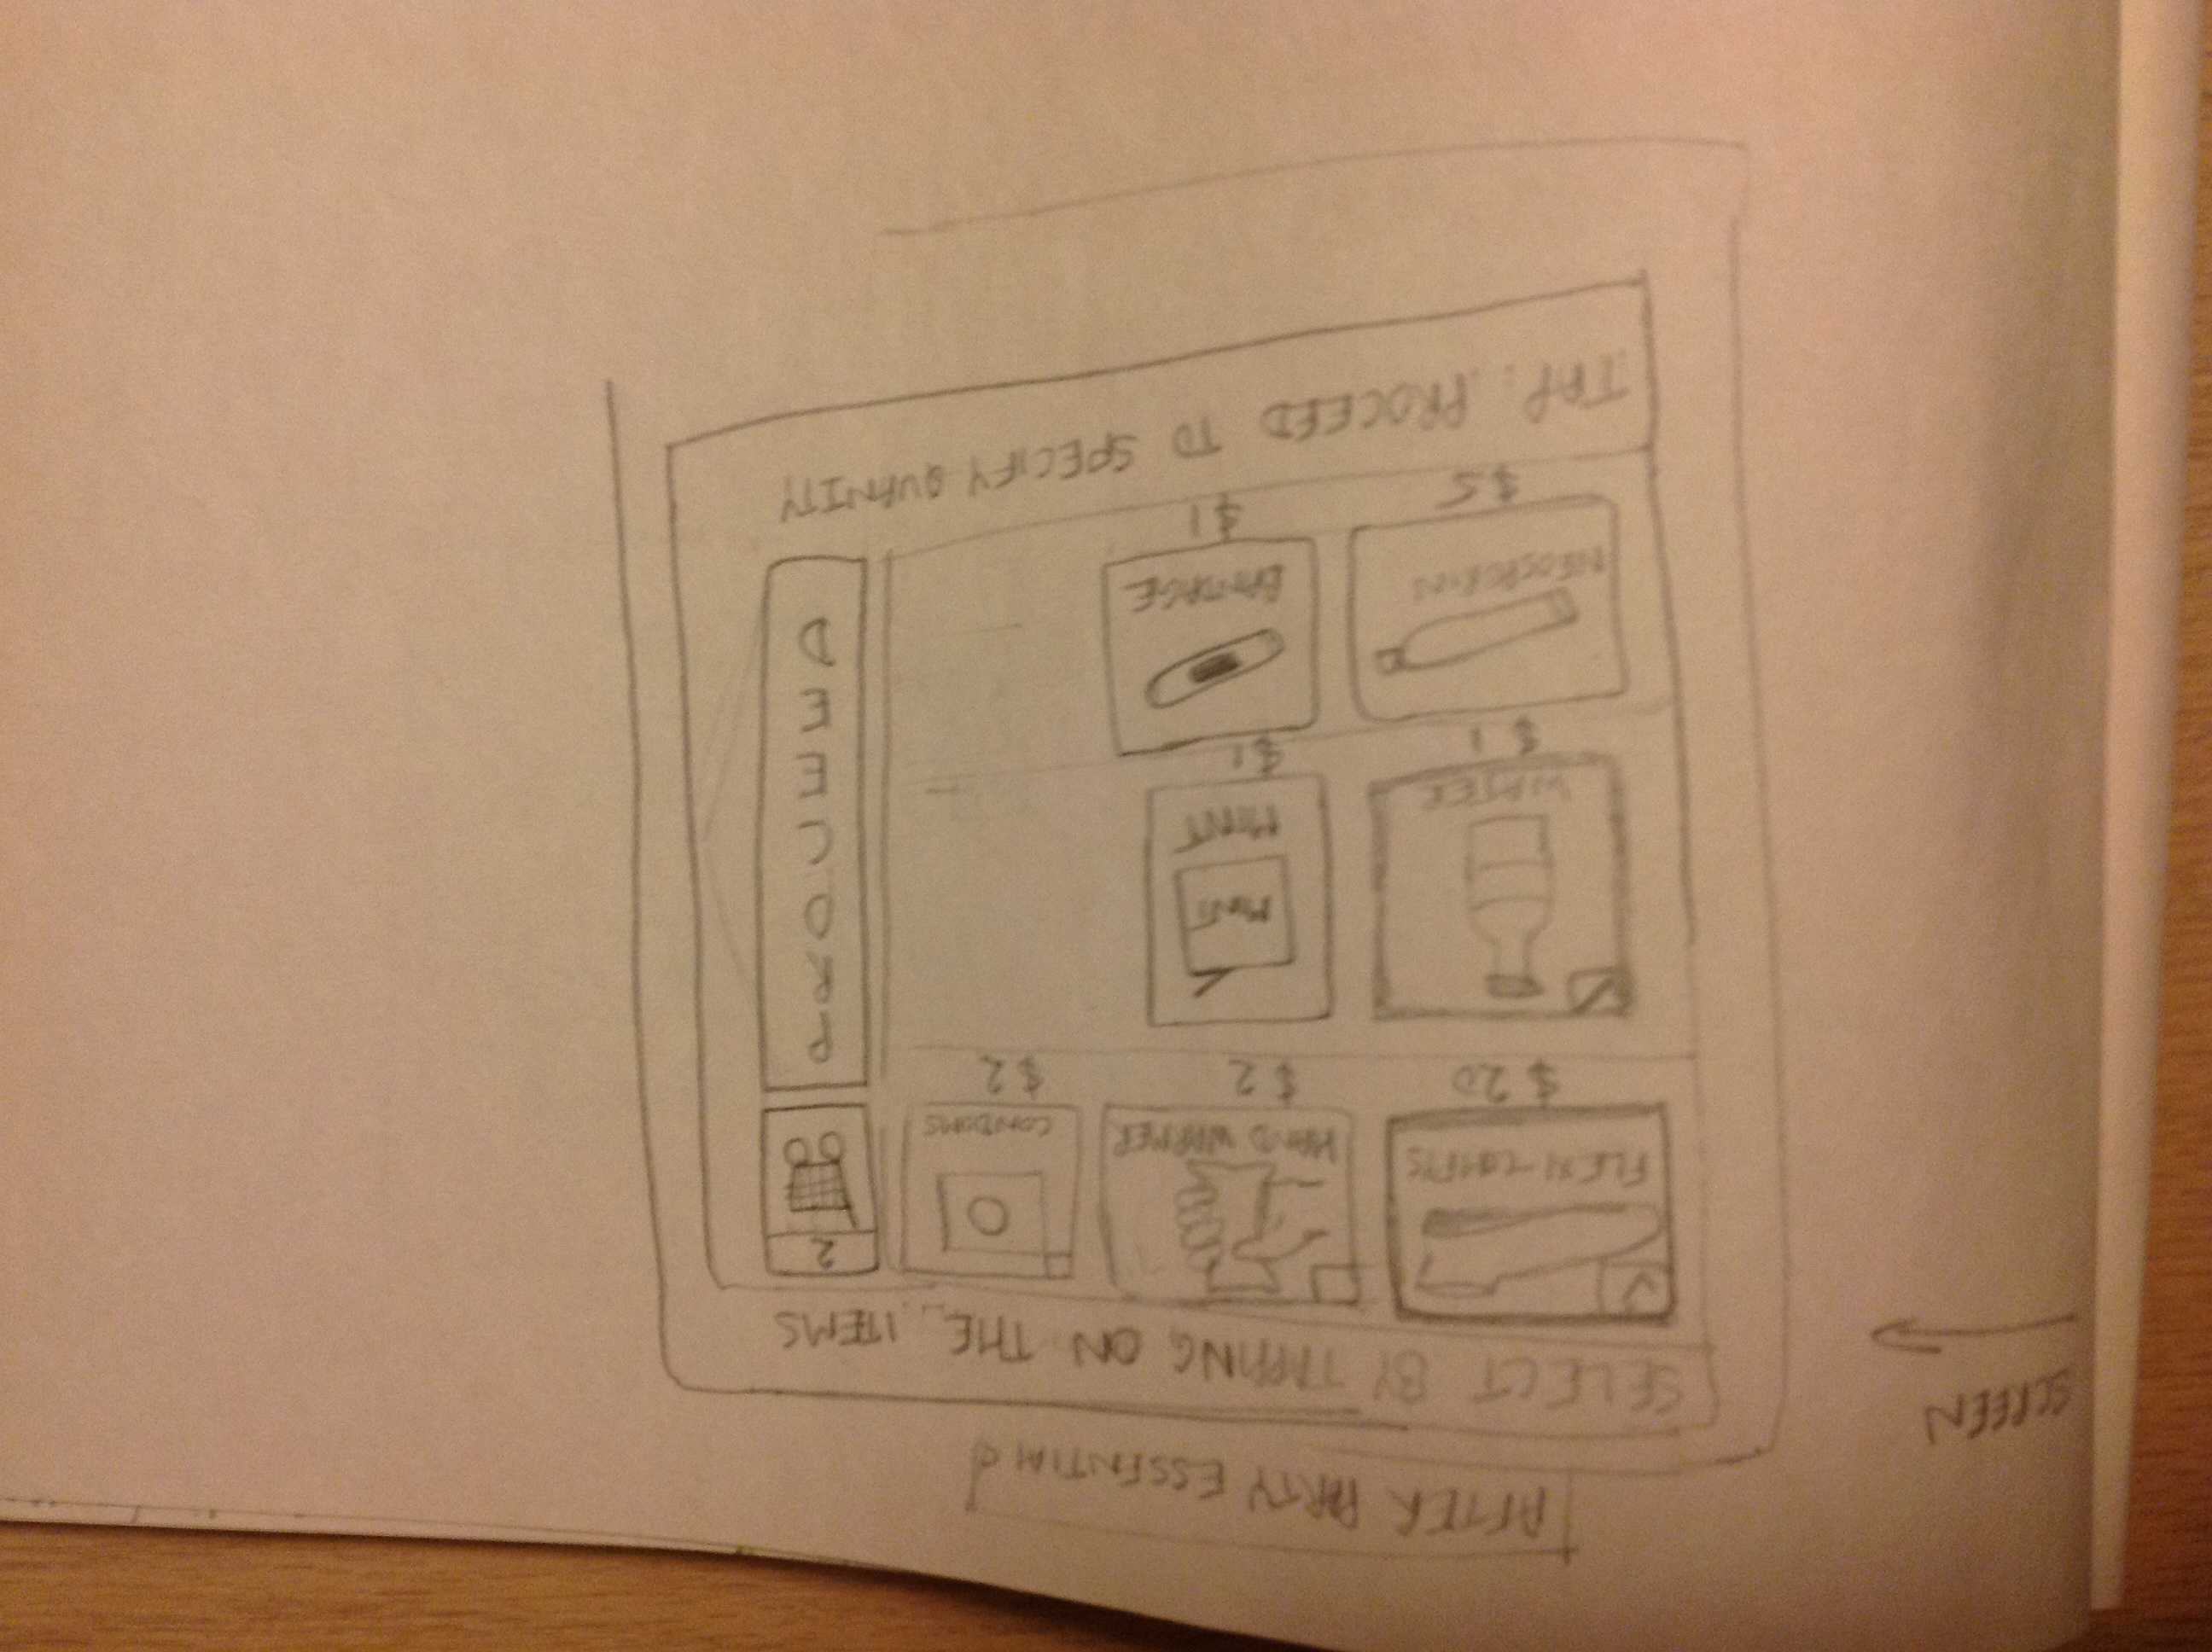 AFTER PARTY ESSENTIAL
SCREEN
SELECT BY TAPPING ON THE ITEMS
FLEXI-COMFYS
HAND WARMER
CONDOMS
2
$20
$2
$2
PROCEED
MINT
WATER
MINT
$1
$1
NEOSPORIN
BANDAGE
$5
$1
TAP PROCEED TO SPECIFY QUANITY